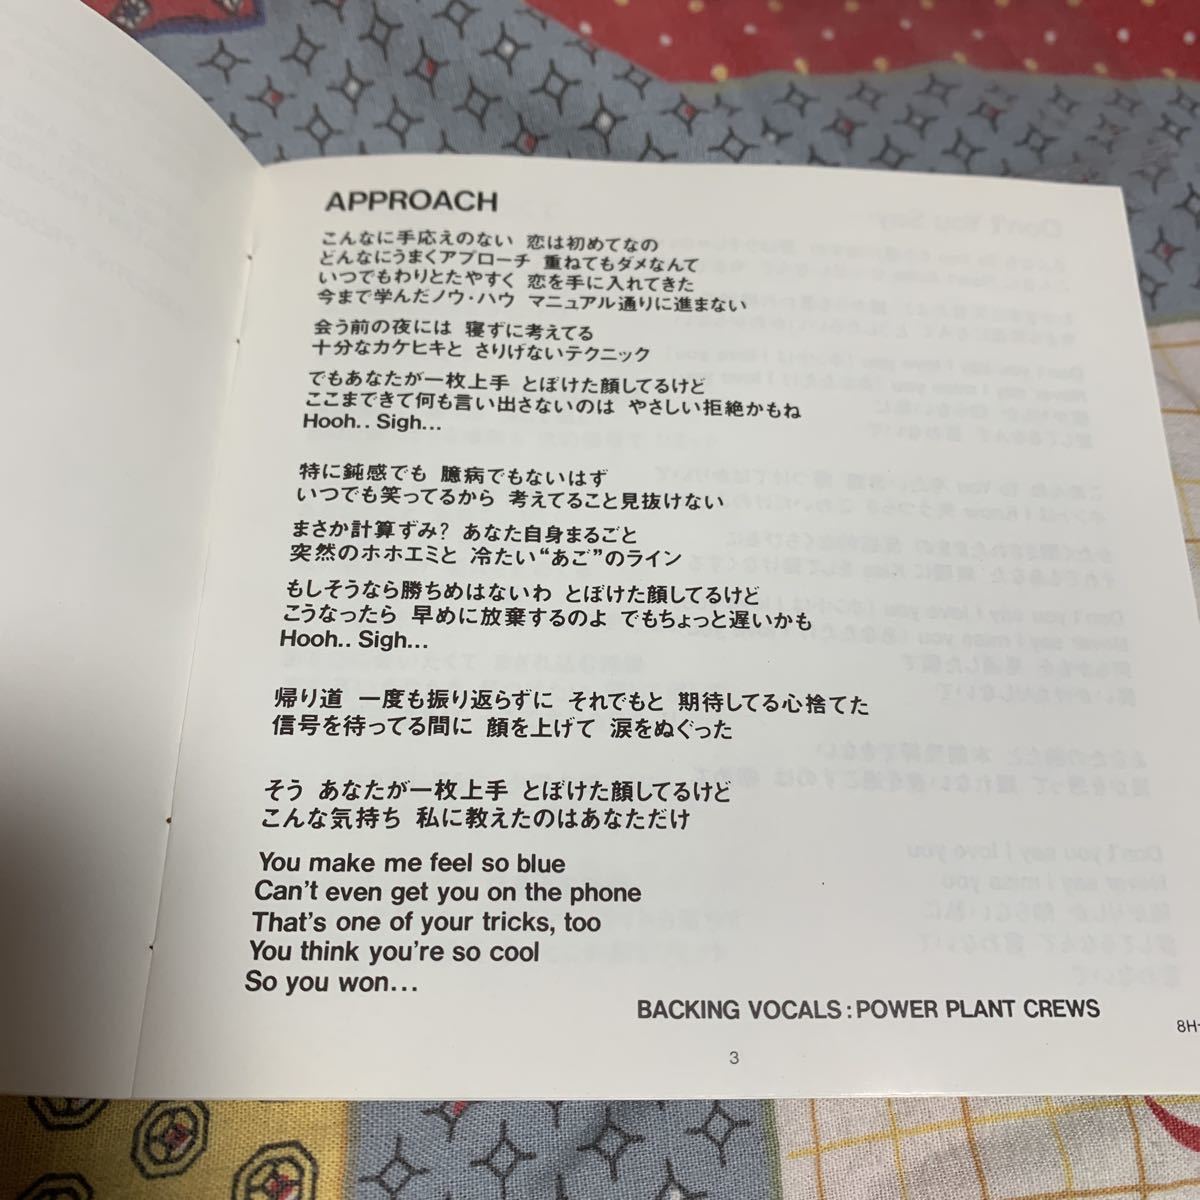 APPROACH
こんなに手応えのない 恋は初めてなの
どんなにうまくアプローチ 重ねてもダメなんて
いつでもわりとたやすく 恋を手に入れてきた
今まで学んだノウ・ハウ マニュアル通りに進まない
会う前の夜には 寝ずに考えてる
十分なカケヒキと さりげないテクニック
でもあなたが一枚上手 とぼけた顔してるけど
ここまできて何も言い出さないのは やさしい拒絶かもね
Hooh.. Sigh...
特に鈍感でも 臆病でもないはず
いつでも笑ってるから 考えてること見抜けない
まさか計算ずみ? あなた自身まるごと
突然のホホエミと 冷たい“あご”のライン
もしそうなら勝ちめはないわ とぼけた顔してるけど
こうなったら 早めに放棄するのよ でもちょっと遅いかも
Hooh.. Sigh...
帰り道 一度も振り返らずに それでもと 期待してる心捨てた
信号を待ってる間に 顔を上げて 涙をぬぐった
そう あなたが一枚上手 とぼけた顔してるけど
こんな気持ち 私に教えたのはあなただけ
You make me feel so blue
Can't even get you on the phone
That's one of your tricks, too
You think you're so cool
So you won...
BACKING VOCALS:POWER PLANT CREWS
8H-
3